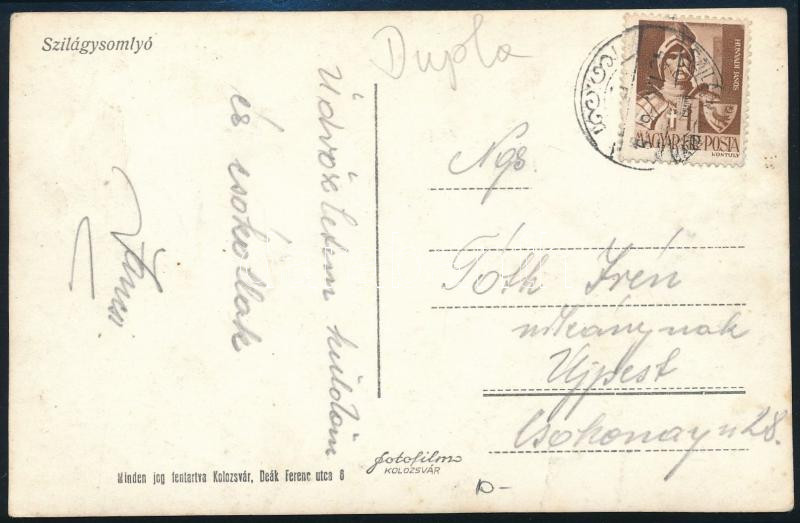 Szilágysomlyó
Dupla
Üdvözletem küldöm
és csókollak
Jancsi
HUNYADI JÁNOS
MAGYAR KIR. POSTA
KONTULY
Ngs.
Tóth Irén
urleánynak
Ujpest
Csokonay u 28.
Minden jog fentartva Kolozsvár, Deák Ferenc utca 6
fotofilm
KOLOZSVÁR
10-